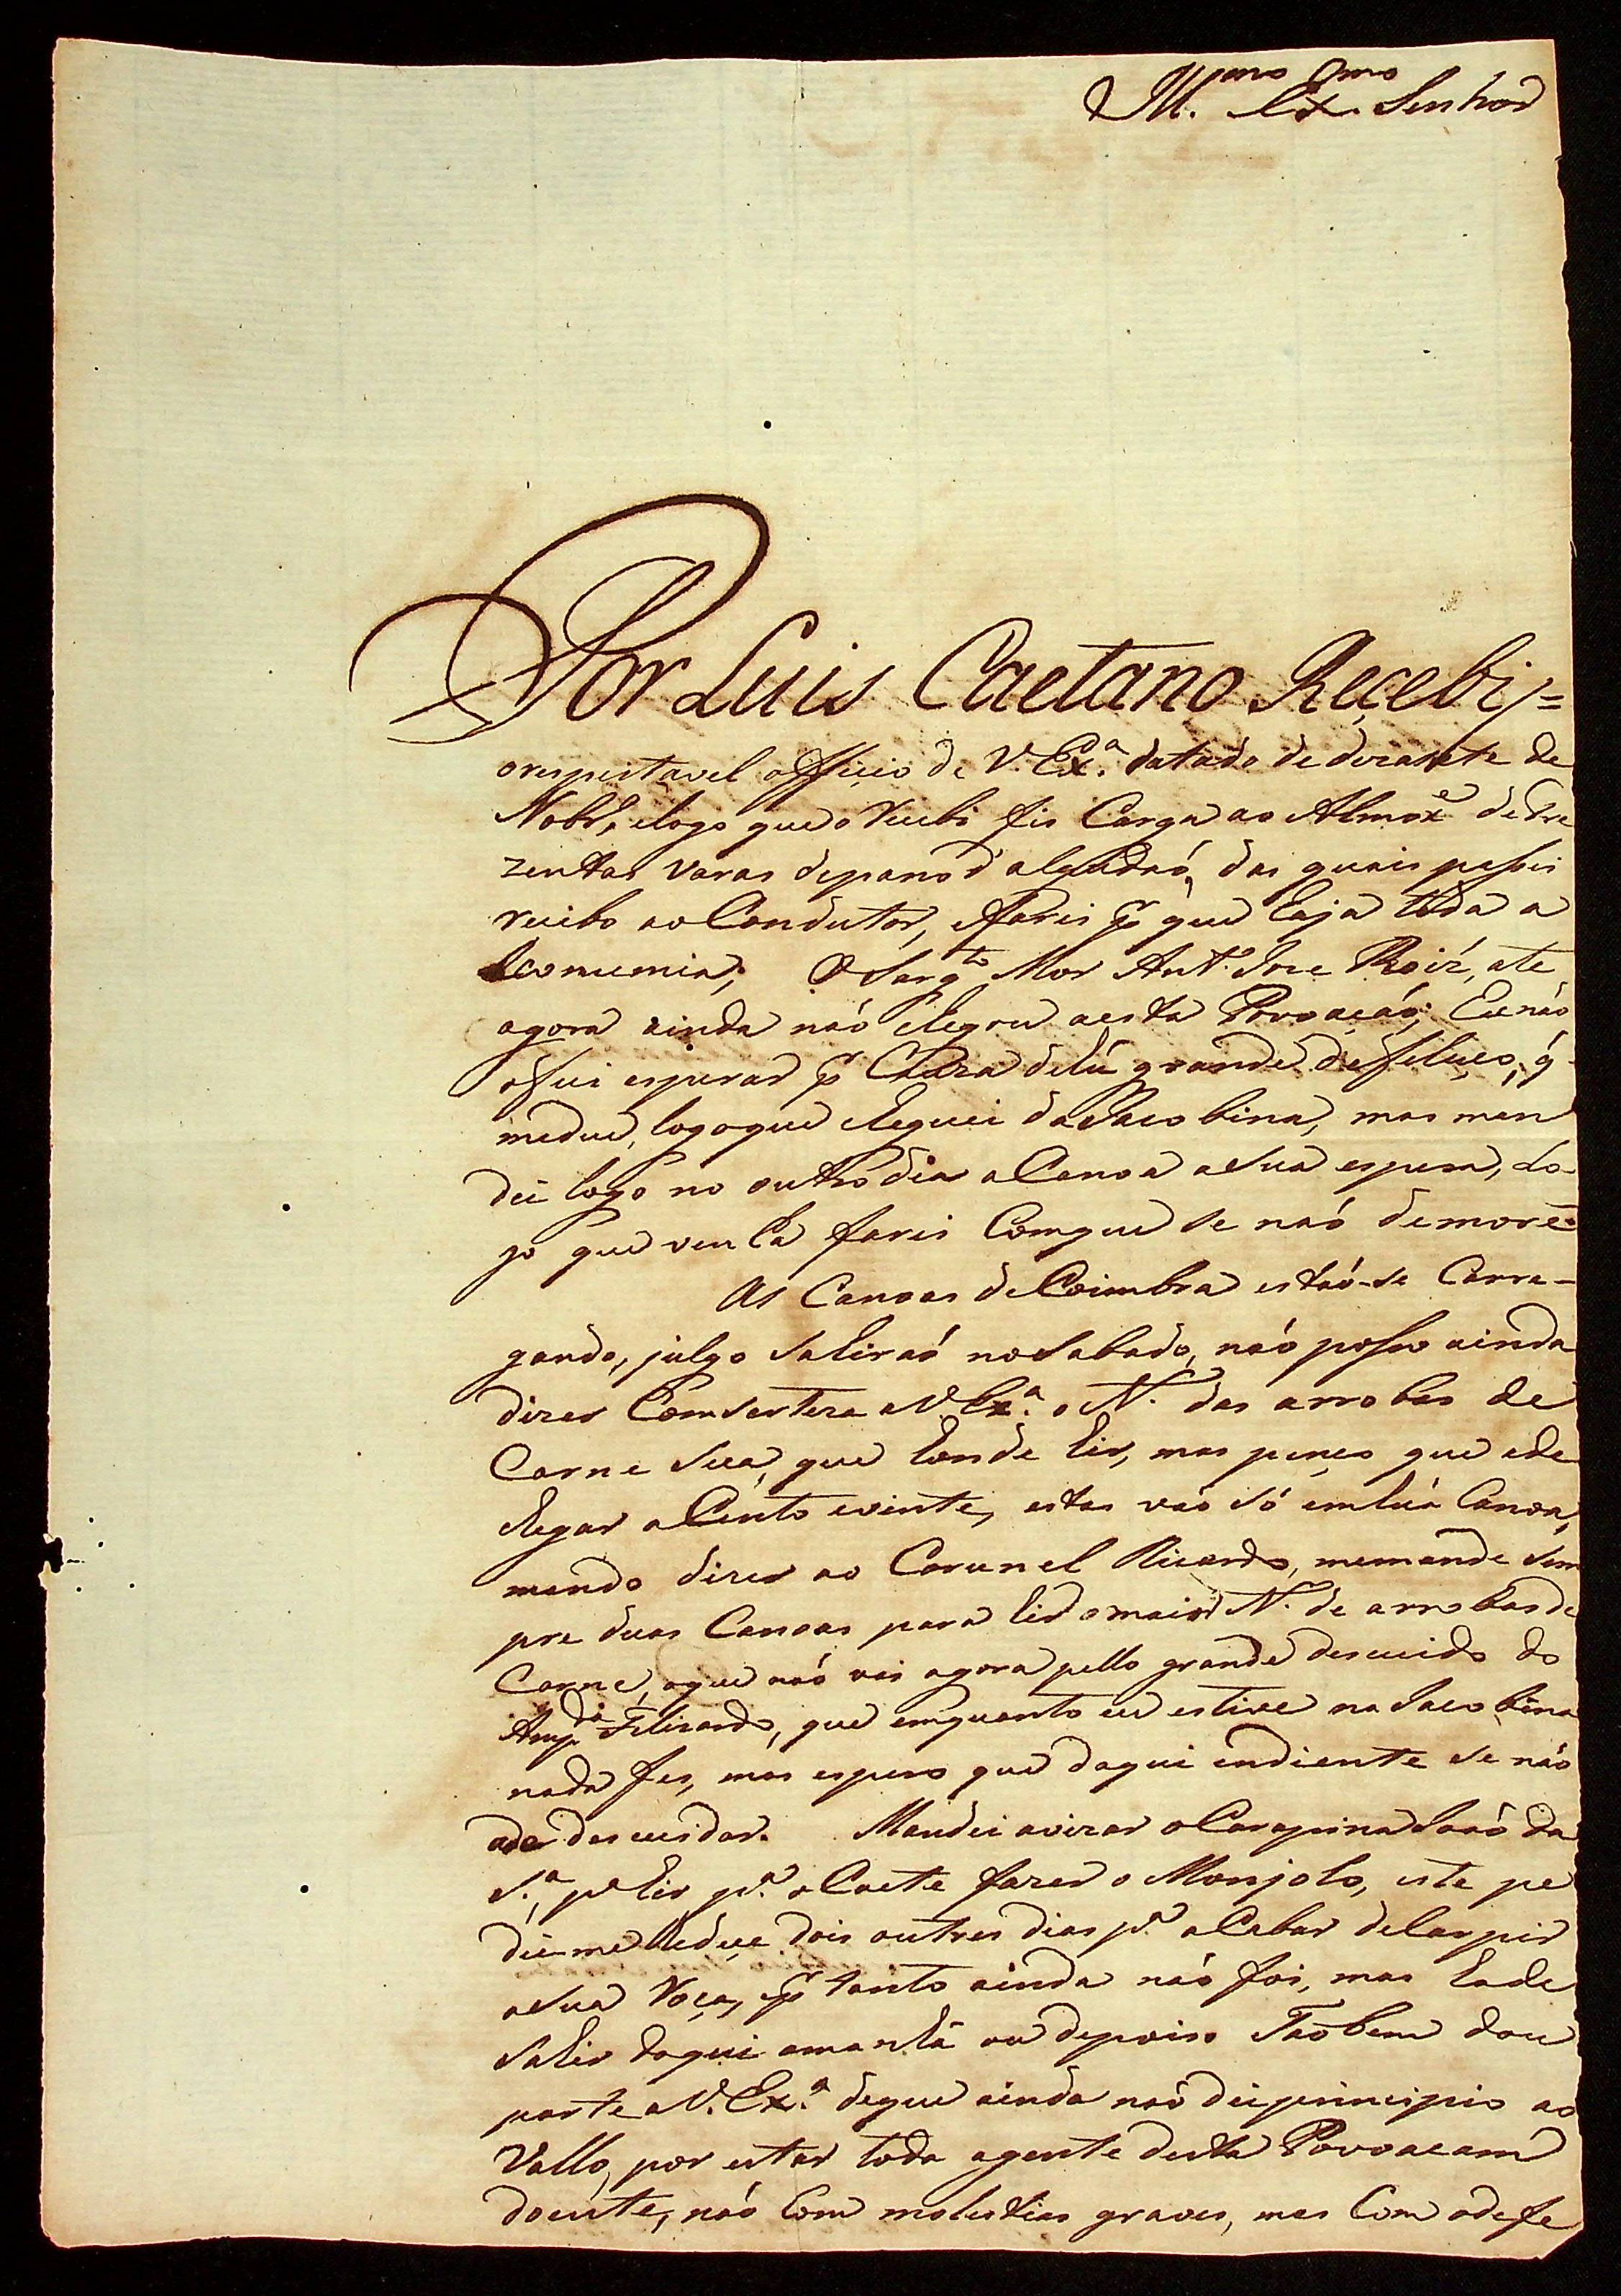 Ill.mo Ex.mo Senhor
Por Luis Caetano Reçebi,=
orespeitavel offiçio de V. Ex.a datado de dezasete de
Nobr.e, elogo que o recebi fis Carga ao Almox.e detre
zentas varas depano d'algudaó, das quais passei
recibo ao Condutor, efarei p.r que haja toda a
Economia; O Sarg.to Mor Ant.o Joze Roiz, ate
agora ainda naó chegou aesta Povoaçáo; Eu náo
ofui esperar p.r Cauza dehú grande defluço, q̃
medeu, logoque cheguei daJacobina, mas man
dei logo no outro dia aCanoa asua espera, Lo-
go que venha farei Comque se naó demore.
As Canoas deCoimbra estaó-se Carre-
gando, julgo sahiraó noSabado, naó posso ainda
dizer Comserteza aV. Ex.a o N.o das arrobas de
Carne seca, que hande hir, mas penço que ade
chegar aCento evinte, estas vaó só emhúa Canoa,
mando dizer ao Corunel Ricardo, memande sem
pre duas Canoas para hir omaior N.o de arrobas de
Carne, oque naó vai agora pello grande descuido do
Anp.da Felizardo, que emquanto eu estive na Jacobina
nada fes, mas espero que daqui endiente se náo
ade descuidar. Mandei avizar oCarapina Joaó da
S.a, p.a hir p.a oCaete fazer o Monjolo, este pe
diu-me lhedeçe dois outres dias p.a aCabar deCarpir
asua roça, p.r tanto ainda naó foi, mas hade
sahir daqui amanhã ou depois. Taobem dou
parte aV. Ex.a deque ainda naó dei principio ao
Vallo, por estar toda agente desta Povoacam
doente, naó Com molestias graves, mas Com odefe